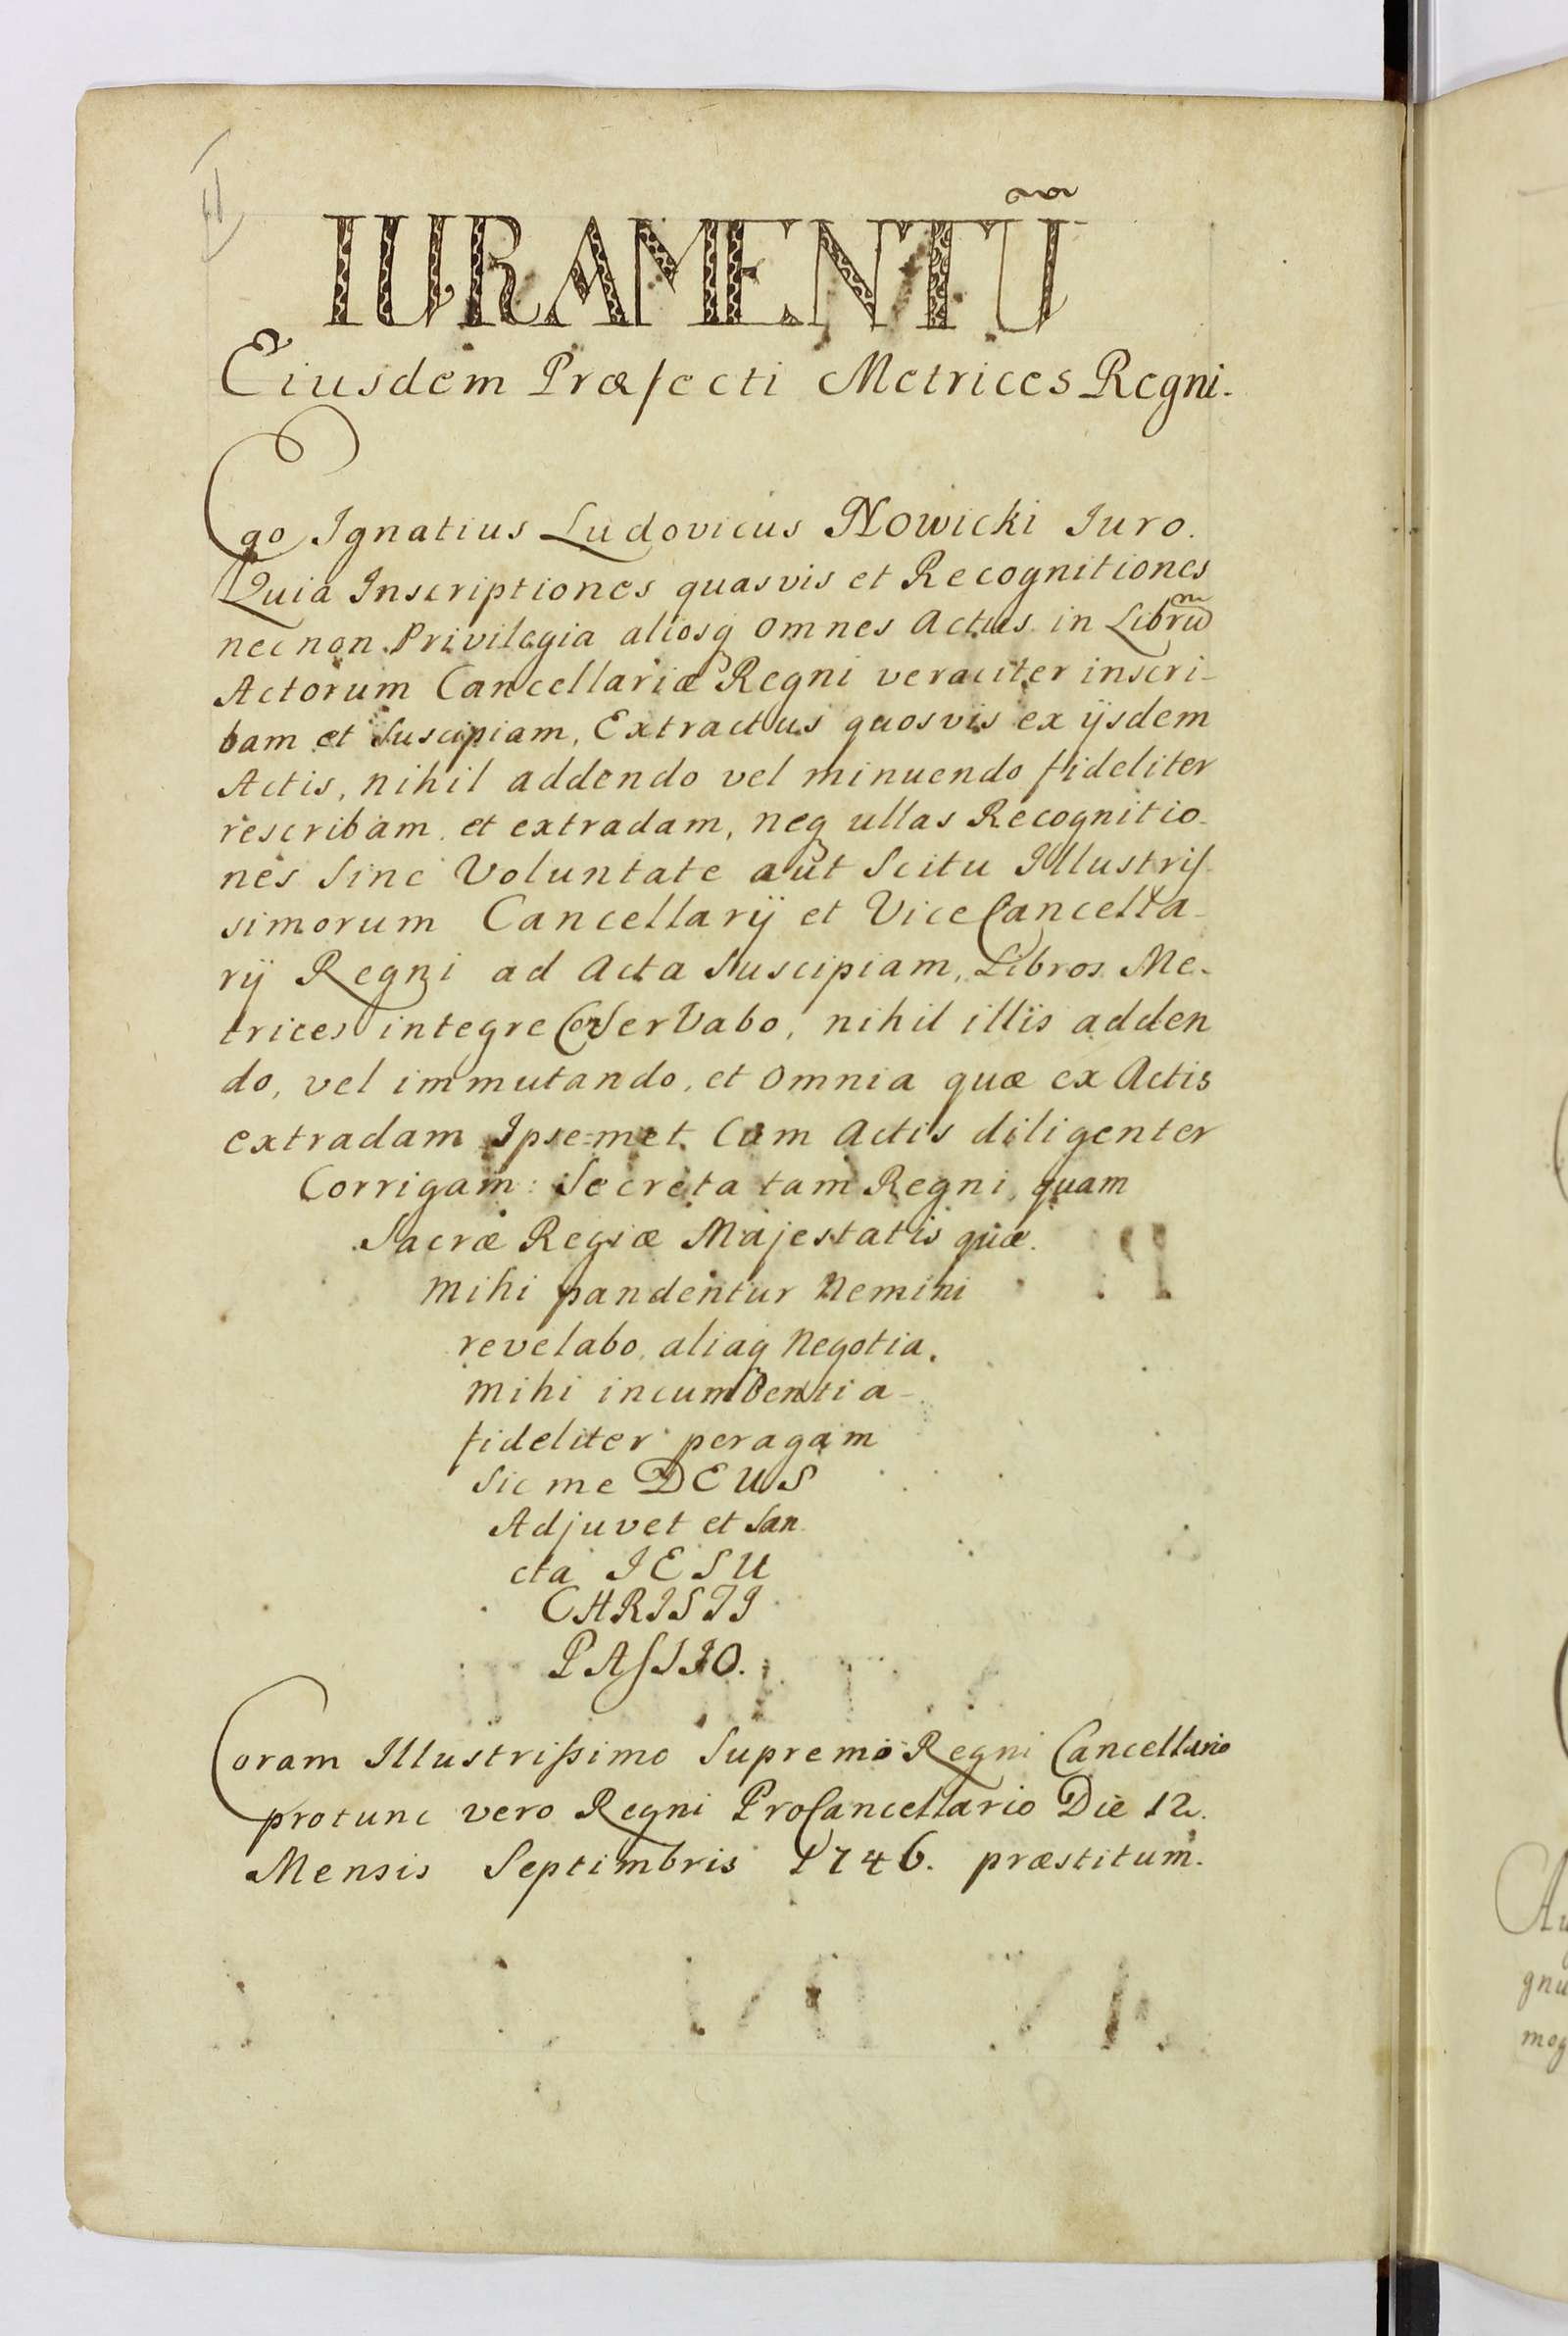 IURAMENTŪ
Eiusdem Præfecti Metrices Regni.
Ego Ignatius Ludovicus Nowicki Iuro.
Quia Inscriptiones quasvis et Recognitiones
nec non Privilegia aliosq omnes Actus in Librū
Actorum Cancellariæ Regni veraciter inscri-
bam et suscipiam, Extractus quosvis ex ijsdem
Actis, nihil addendo vel minuendo fideliter
rescribam et extradam, neq ullas Recognitio-
nes sine Voluntate aut Scitu Illustris-
simorum Cancellarij et ViceCancella-
rij Regni ad Acta suscipiam, Libros Me-
trices integre ConserVabo, nihil illis adden
do, vel immutando, et Omnia quæ ex Actis
extradam Ipse-met Cum Actis diligenter
Corrigam: Secreta tam Regni, quam
Sacræ Regiæ Majestatis quæ
mihi pandentur Nemini
revelabo, aliaq Negotia.
mihi incumbentia-
fideliter peragam
Sic me DEUS
Adjuvet et San
cta IESU
CHRISTI
PASSIO.
Coram Illustrissimo Supremo Regni Cancellario
protunc vero Regni ProCancellario Die 12.
Mensis Septimbris 1746. præstitum.
Au
gnu
mog